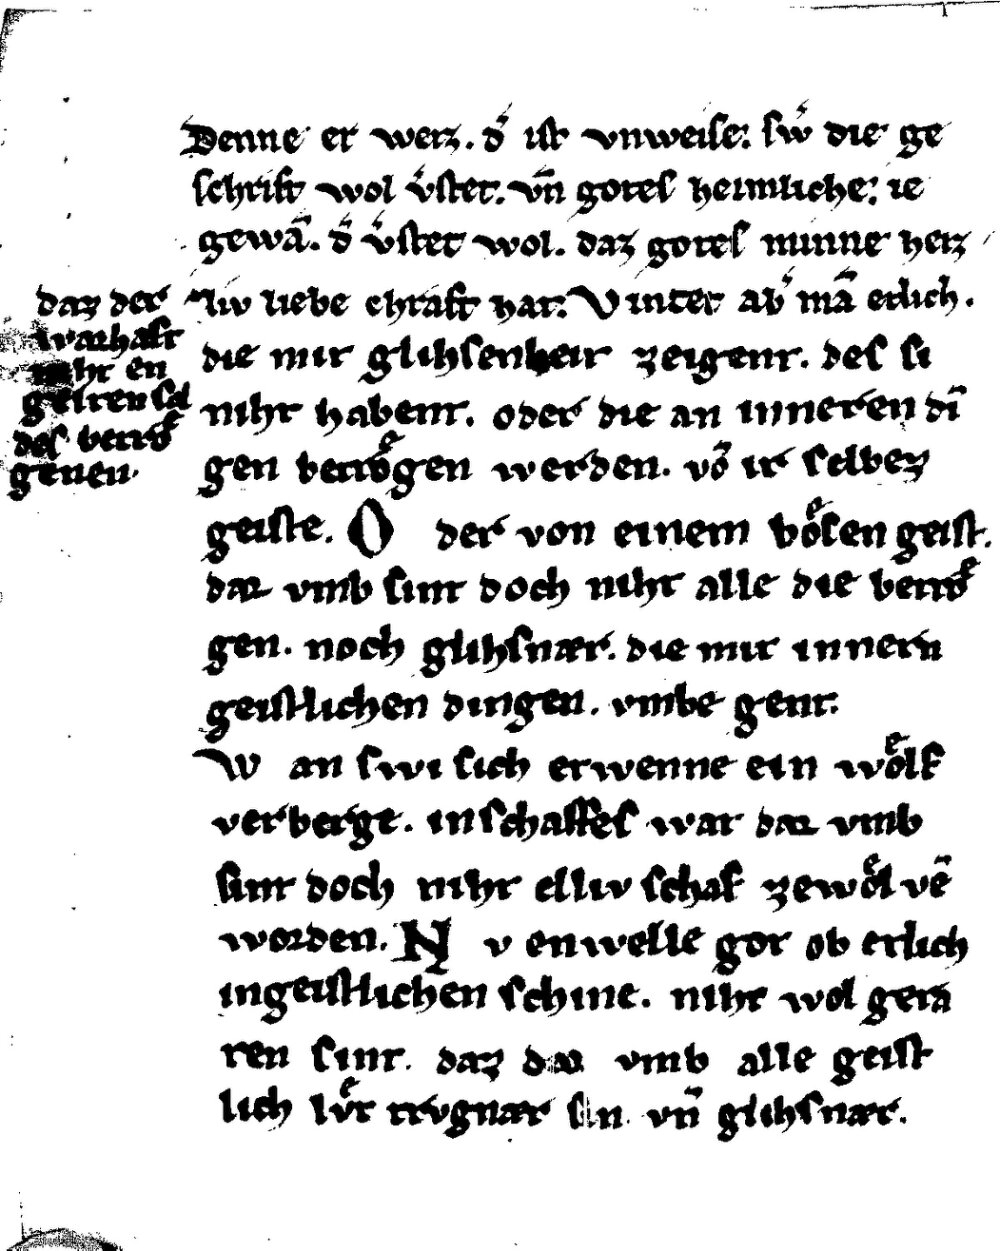 Denne er weiz. d͛ ist vnweise: sw͛ die ge
schrift wol v͛stet. vn̄ gotes heimliche: ie
gewā. d͛ v͛stet wol. daz gotes minne herz
liv liebe chraft hat. Vindet ab͛ mā etlich.
die mit glihsenheit zeigent. des si
niht habent. oder die an inneren dī
gen betroͤgen werden. vō ir selbez
geiste. Oder von einem boͤsen geist.
dar vmb sint doch niht alle die betroͤ
gen. noch glihsnær. die mit innern
geistlichen dingen. vmbe gent.
Wan swi sich etwenne ein woͤlf
verberge. in schaffes wat dar vmb
sint doch niht elliv schaf ze woͤlvē
worden. Nv enwelle got ob etlich
in geistlichen schine. niht wol gera
ten sint. daz dar vmb alle geist
lich lvͤt trvgnær sin. vn̄ glihsnær.
daz der
warhaft
niht en
gelten sol
des betroͤ
genen.